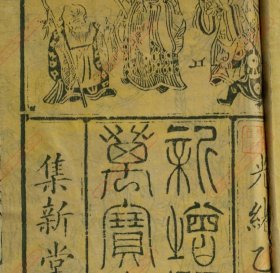 光緒乙
新增
萬寶
集新堂